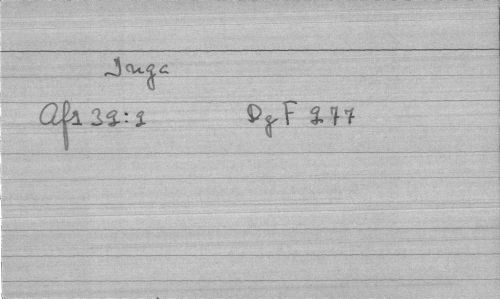 Inga
Afs 39:2 DgF 277